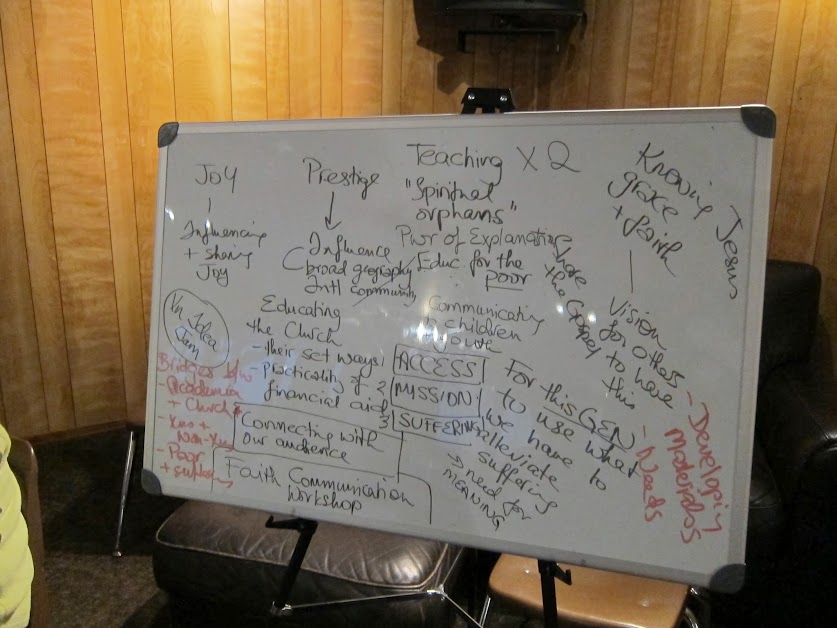 Joy
Influencing
+ sharing
Joy
Prestige
Influence
broad geography
Intl community
Teaching x2
"Spiritual
orphans"
Pwr of Explanation
Educ. for the
poor
Knowing Jesus
grace
+ faith
Vision
for others
to have
this
the Gospel
Educating
the Church
- their set ways
- practicality of
financial aid
Communicating
children
1 ACCESS
2 MISSION
3 SUFFERING
For this GEN
to use what
we have to
alleviate
suffering
→ need for
MEANING
Idea
Jam
Bridges b/w
- Academia
+ Church
- Xns +
Non-Xns
- Poor
+
Connecting with
Our audience
Faith Communication
Workshop
- Developing
Materials
- Needs